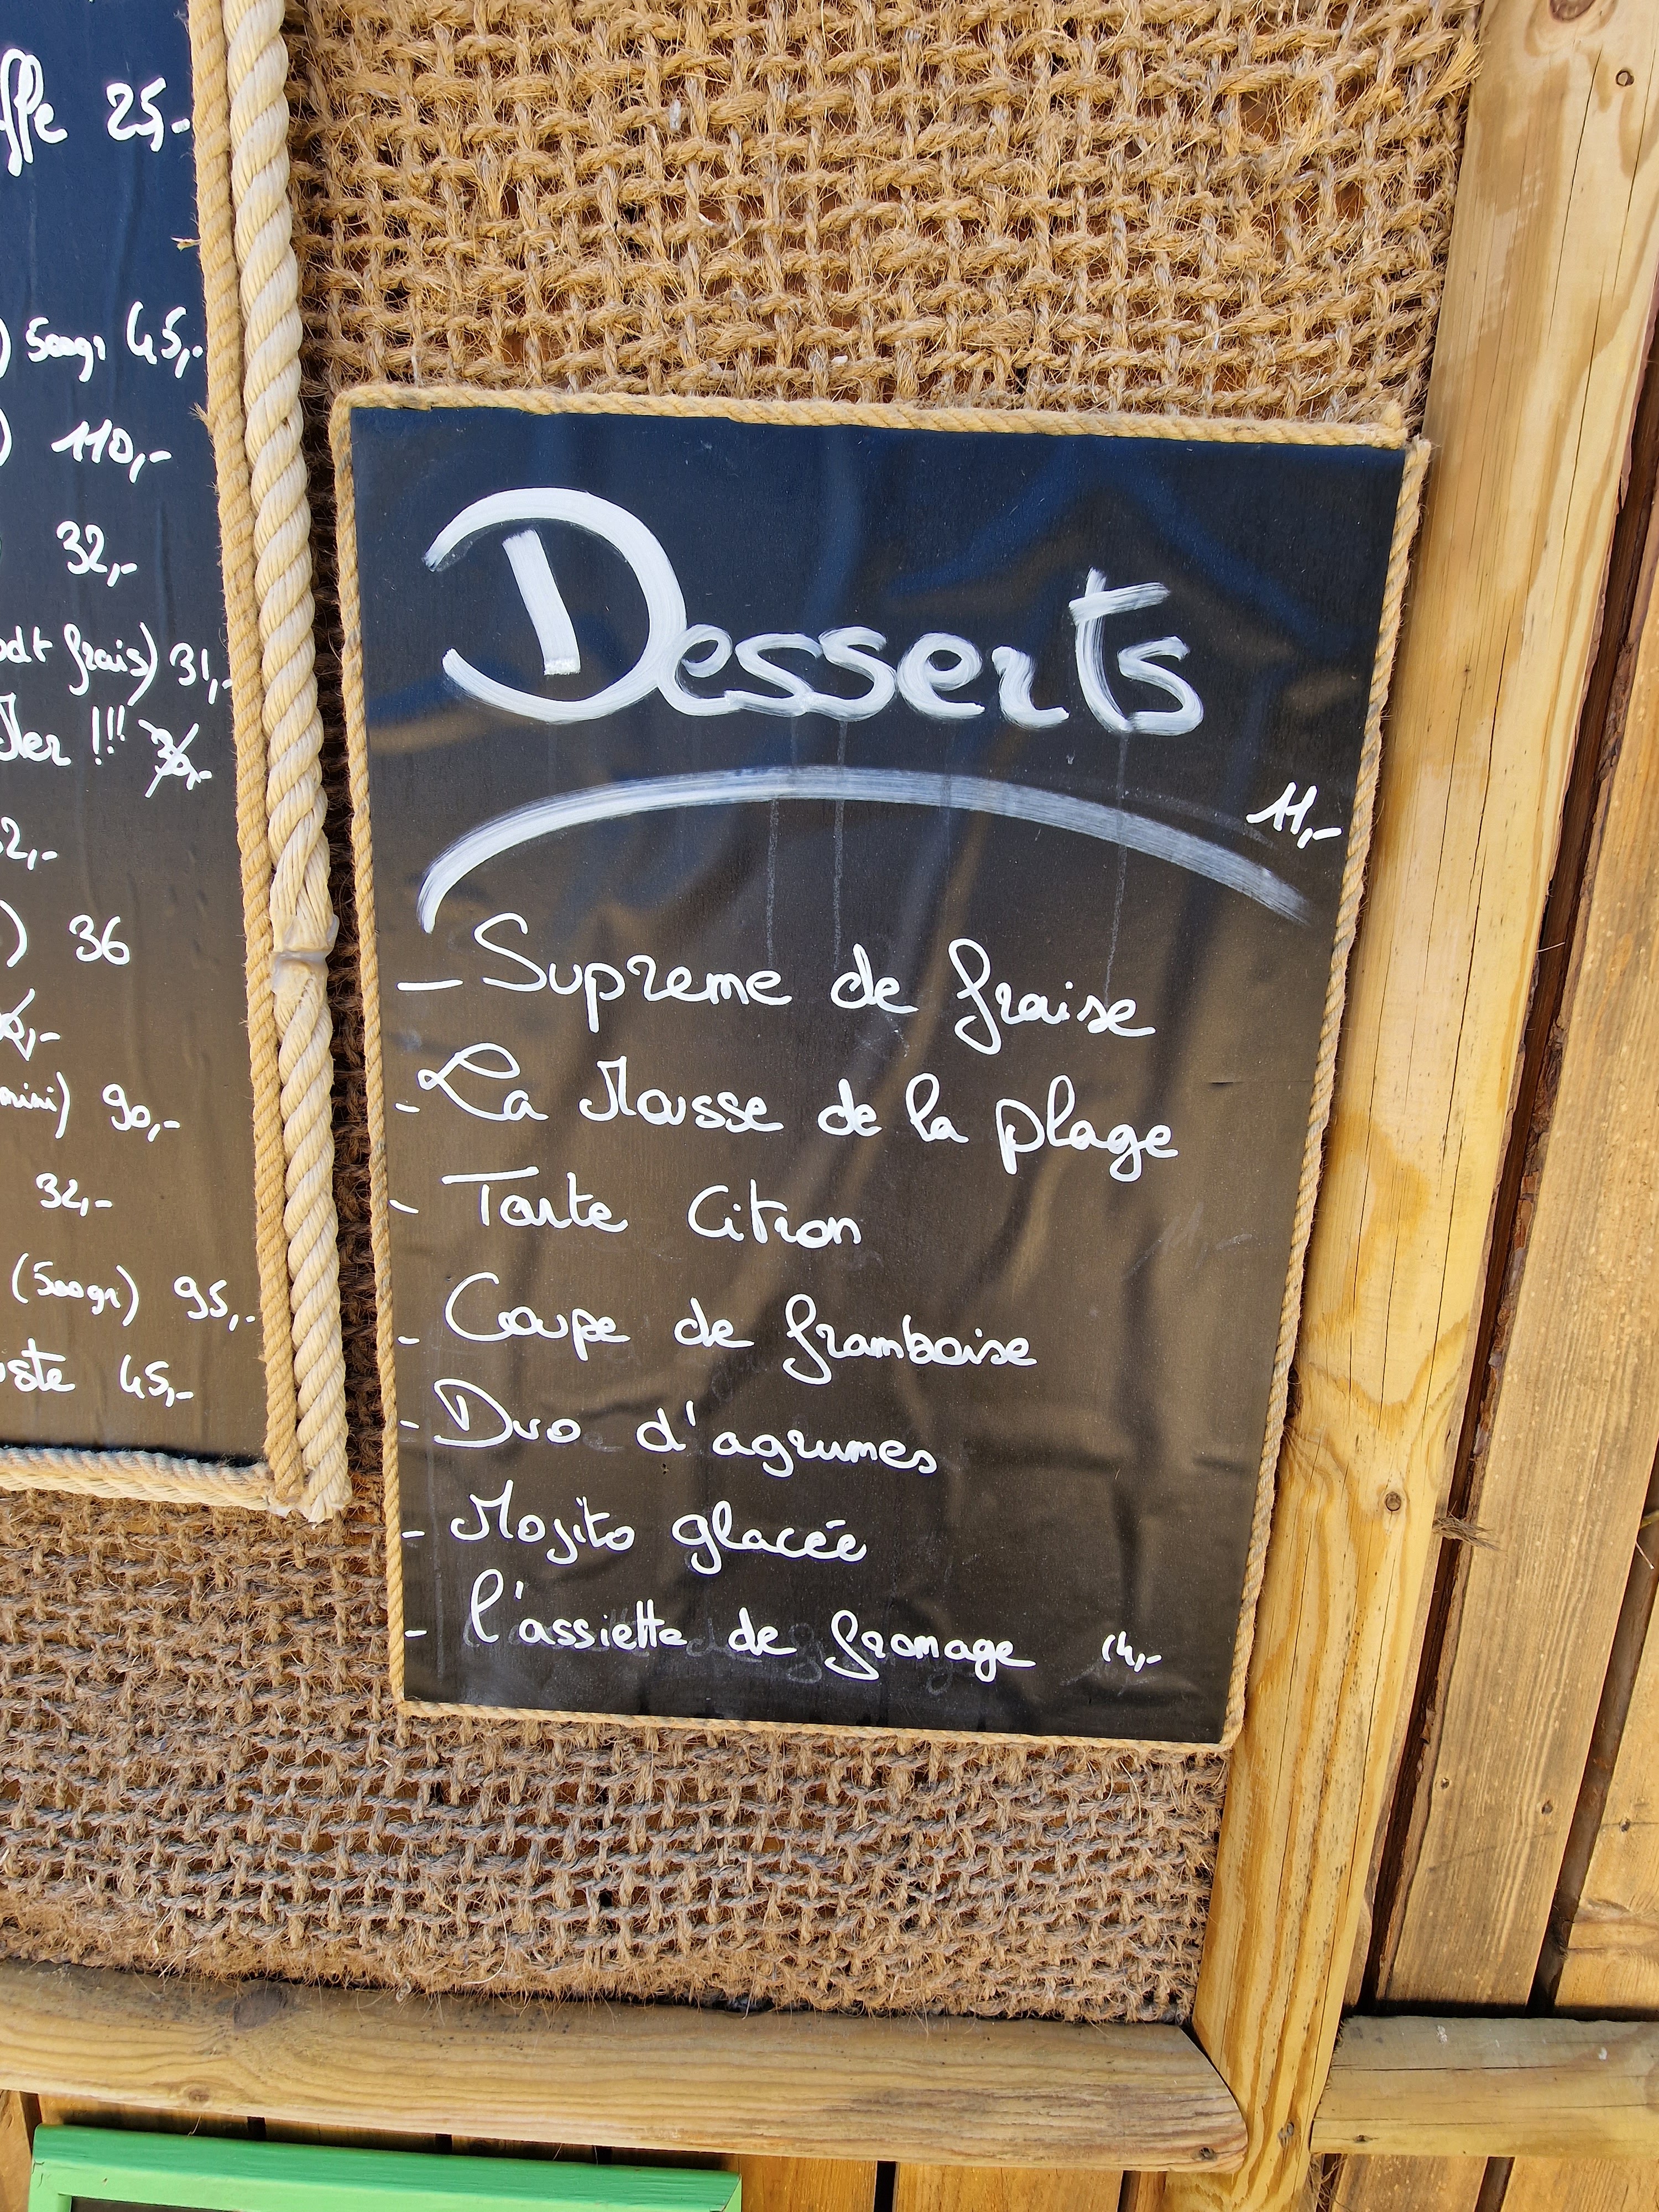 25,-
) 500gr 45,-
) 110,-
32,-
frais) 31,-
!!!
2,-
) 36
) 90,-
32,-
(500gr) 95,-
45,-
Desserts
11,-
- Supreme de fraise
- La Mousse de la plage
- Tarte Citron
- Coupe de framboise
- Duo d'agrumes
- Mojito glacée
- l'assiette de fromage 14,-